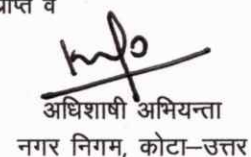 व
अधिशाषी अभियन्ता
नगर निगम, कोटा–उत्तर